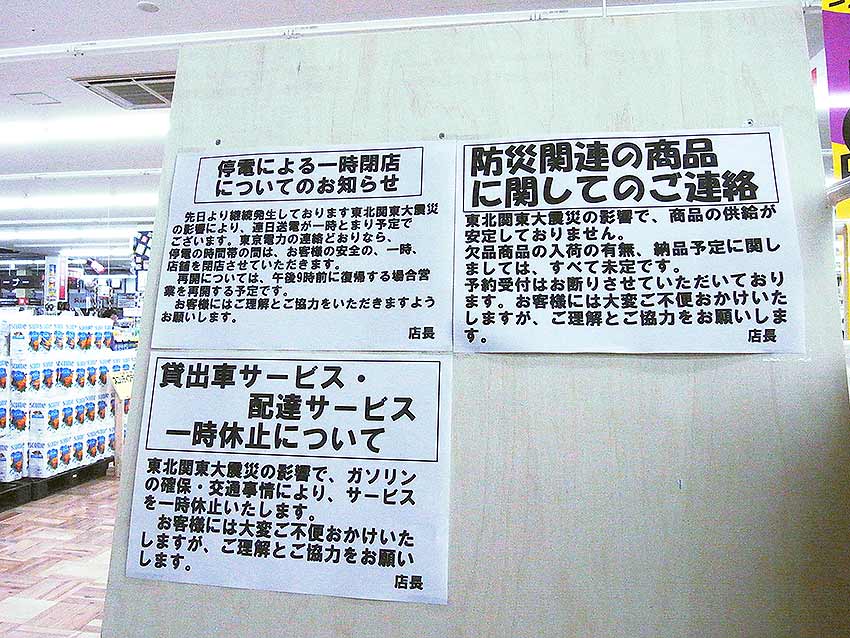 停電による一時閉店
についてのお知らせ
先日より継続発生しております東北関東大震災
の影響により、連日送電が一時とまり予定で
ございます。東京電力の連絡どおりなら、
停電の時間帯の間は、お客様の安全の、一時、
店舗を閉店させていただきます。
再開については、午後9時前に復帰する場合営
業を再開する予定です。
お客様にはご理解とご協力をいただきますよう
お願いします。
店長
防災関連の商品
に関してのご連絡
東北関東大震災の影響で、商品の供給が
安定しておりません。
欠品商品の入荷の有無、納品予定に関し
ましては、すべて未定です。
予約受付はお断りさせていただいており
ます。お客様には大変ご不便おかけいた
しますが、ご理解とご協力をお願いしま
す。
店長
貸出車サービス・
配達サービス
一時休止について
東北関東大震災の影響で、ガソリン
の確保・交通事情により、サービス
を一時休止いたします。
お客様には大変ご不便おかけいた
しますが、ご理解とご協力をお願い
します。
店長
scottie